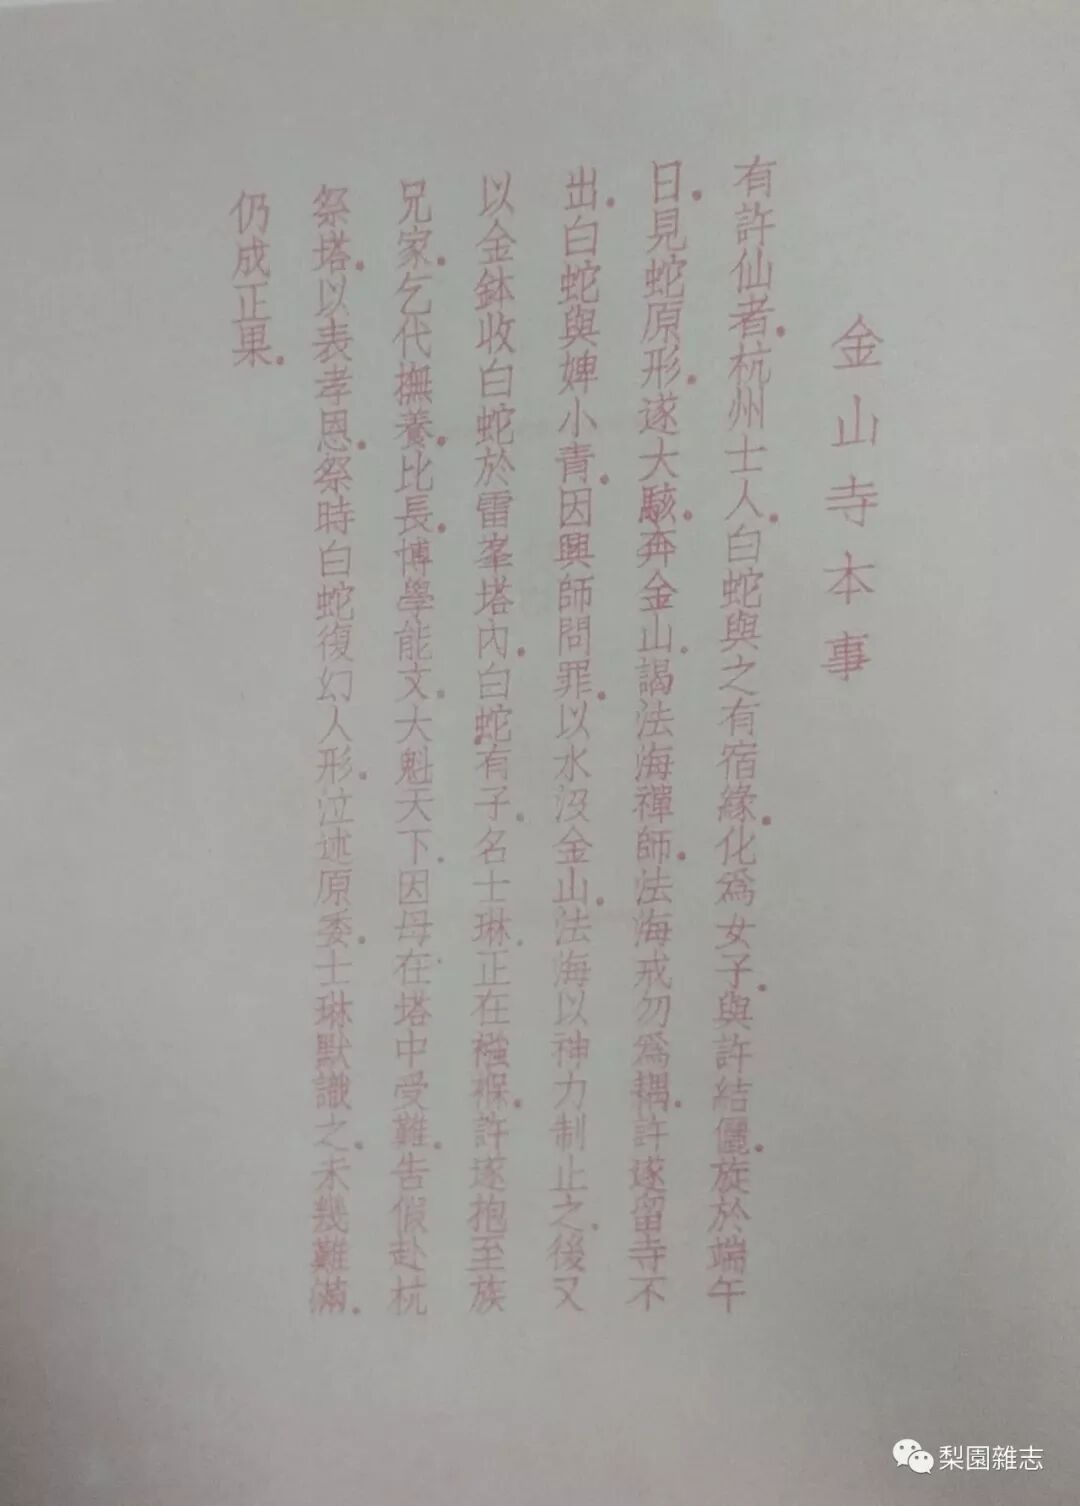 金山寺本事
有許仙者.杭州士人.白蛇與之有宿緣.化爲女子.與許結儷.旋於端午
日.見蛇原形.遂大駭.奔金山.謁法海禪師.法海戒勿爲耦.許遂留寺不
出.白蛇與婢小青.因興師問罪.以水沒金山.法海以神力制止之.後又
以金鉢收白蛇於雷峯塔內.白蛇有子.名士琳.正在襁褓.許遂抱至族
兄家.乞代撫養.比長.博學能文.大魁天下.因母在塔中受難.告假赴杭
祭塔.以表孝恩.祭時白蛇復幻人形.泣述原委.士琳默識之.未幾難滿.
仍成正果.
梨園雜志